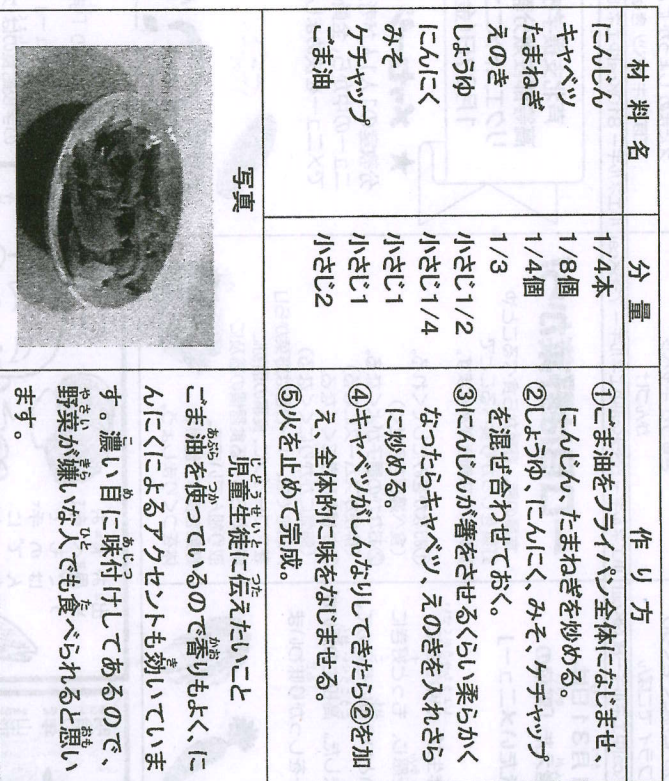 材料名
分量
作り方
にんじん
キャベツ
たまねぎ
えのき
しょうゆ
にんにく
みそ
ケチャップ
ごま油
1/4本
1/8個
1/4個
1/3
小さじ1/2
小さじ1/4
小さじ1
小さじ1
小さじ2
①ごま油をフライパン全体になじませ、
にんじん、たまねぎを炒める。
②しょうゆ、にんにく、みそ、ケチャップ
を混ぜ合わせておく。
③にんじんが箸をさせるくらい柔らかく
なったらキャベツ、えのきを入れさら
に炒める。
④キャベツがしんなりしてきたら②を加
え、全体的に味をなじませる。
⑤火を止めて完成。
写真
じどうせいと つた
児童生徒に伝えたいこと
あぶら つか かお
ごま油を使っているので香りもよく、に
き
んにくによるアクセントも効いていま
こ め あじつ
す。濃い目に味付けしてあるので、
やさい きら ひと た おも
野菜が嫌いな人でも食べられると思い
ます。